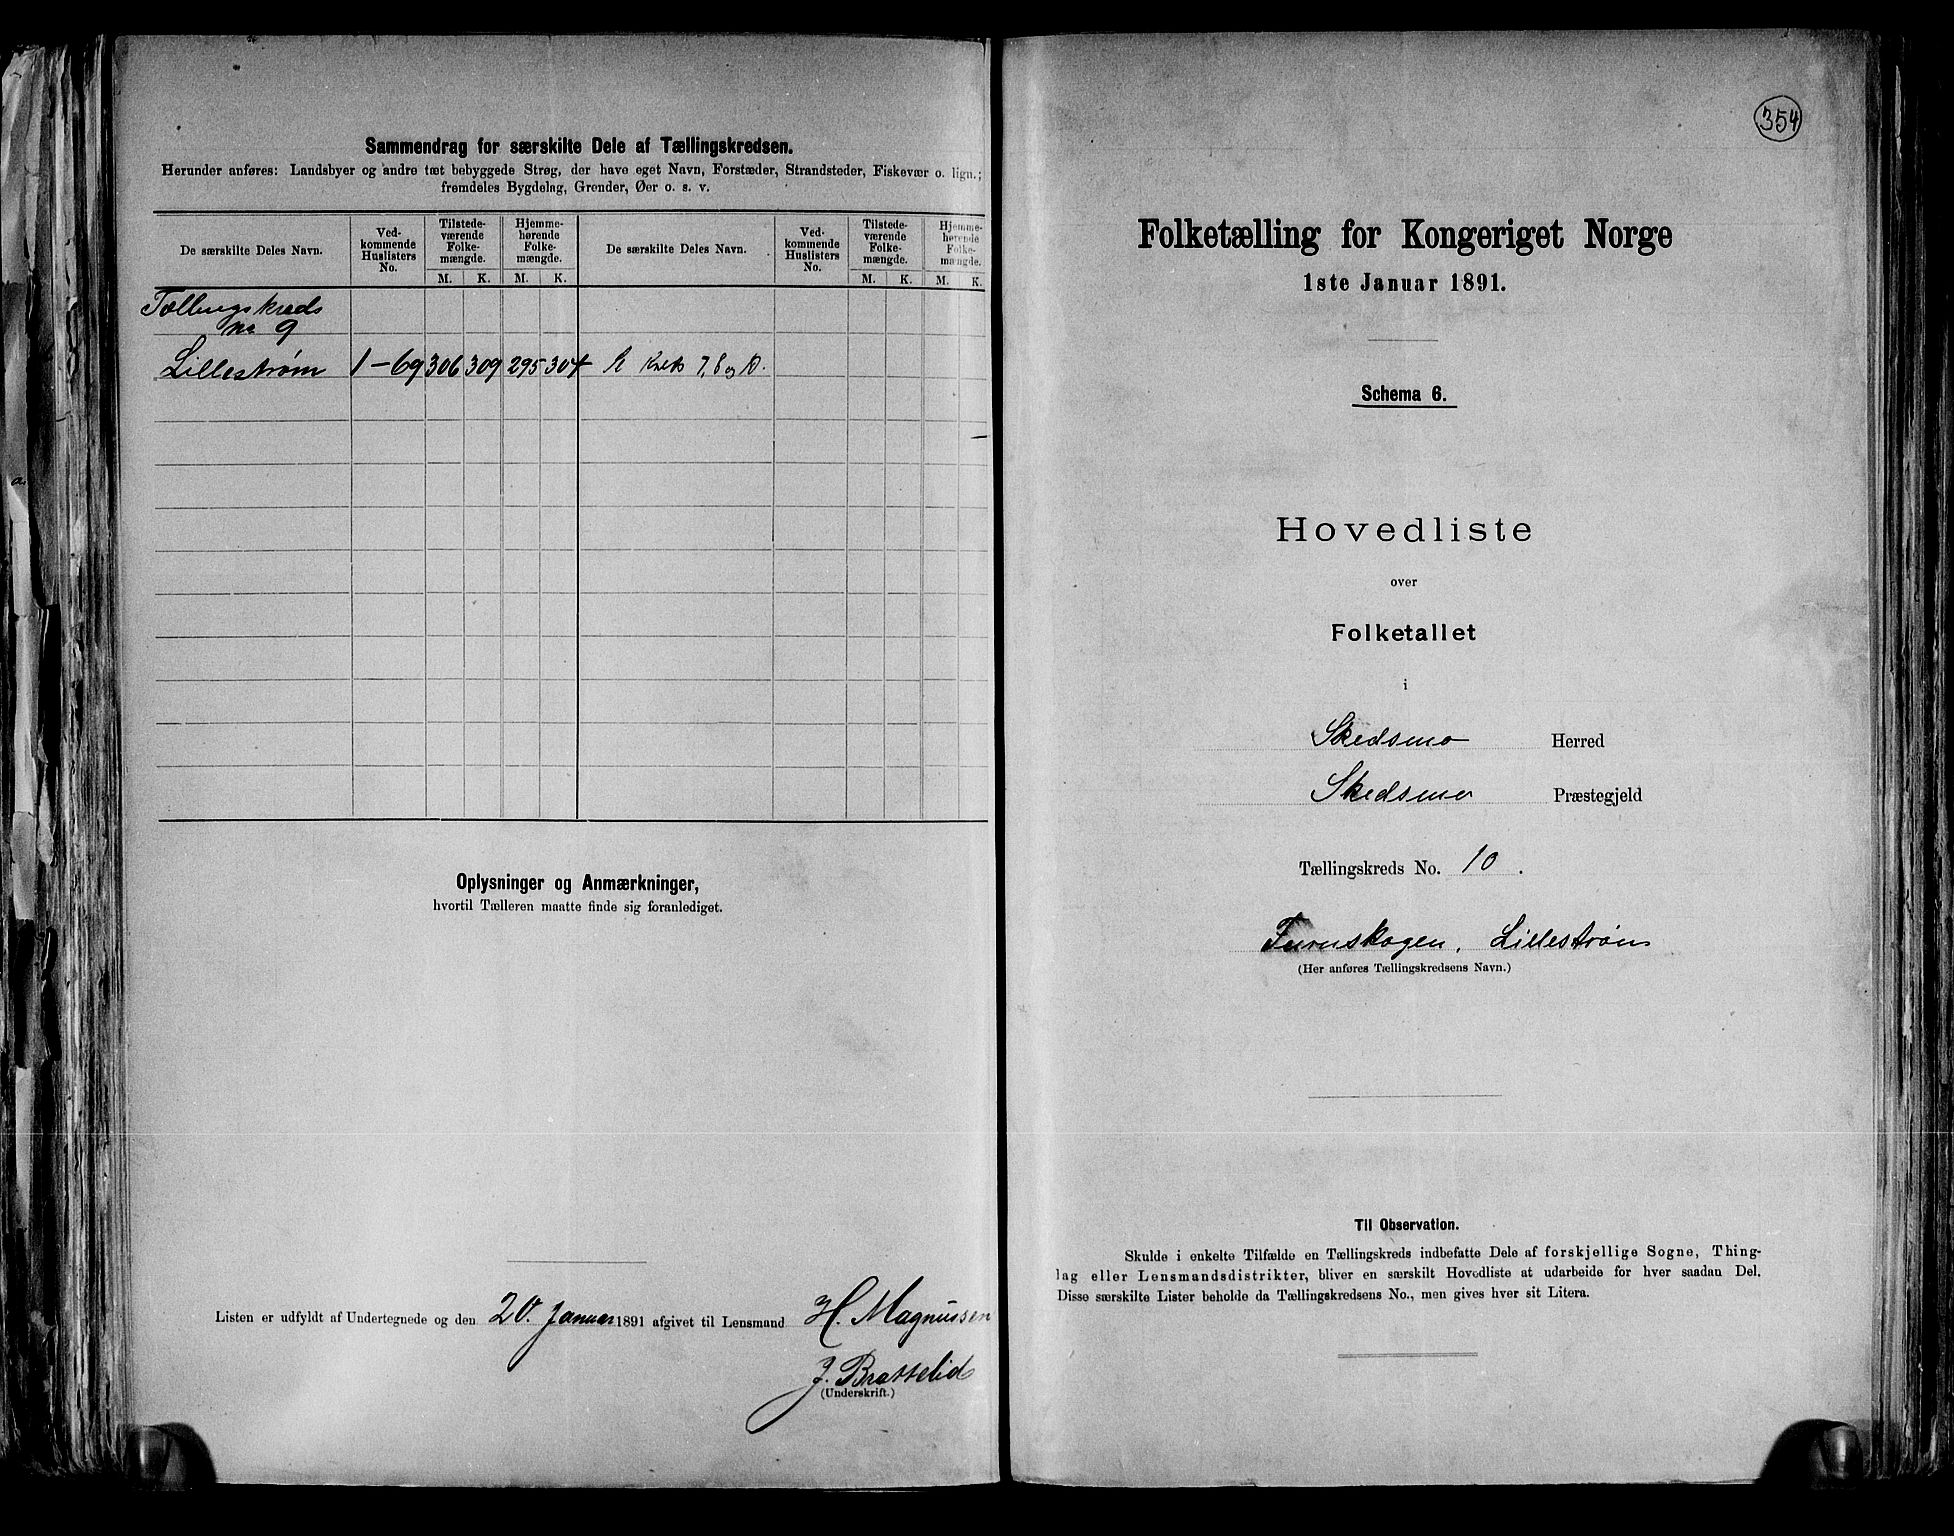 Sammendrag for særskilte Dele af Tællingskredsen.
Herunder anføres: Landsbyer og andre tæt bebyggede Strøg, der have eget Navn, Forstæder, Strandsteder, Fiskevær o. lign.;
fremdeles Bygdelag, Grender, Øer o. s. v.
De særskilte Deles Navn.
Ved-
kommende
Huslisters
No.
Tilstede-
værende
Folke-
mængde.
Hjemme-
hørende
Folke-
mængde.
De særskilte Deles Navn.
Ved-
kommende
Huslisters
No.
Tilstede-
værende
Folke-
mængde.
Hjemme-
hørende
Folke-
mængde.
M. K. M. K. M. K. M. K.
Tællingskreds
No 9
Lillestrøm 1-69 306 309 295 304 7, 8 og
Oplysninger og Anmærkninger,
hvortil Tælleren maatte finde sig foranlediget.
Listen er udfyldt af Undertegnede og den 20. Januar 1891 afgivet til Lensmand H. Magnussen
J. Brattelid
(Underskrift.)
354
Folketælling for Kongeriget Norge
1ste Januar 1891.
Schema 6.
Hovedliste
over
Folketallet
i
Skedsmo Herred
Skedsmo Præstegjeld
Tællingskreds No. 10.
Furuskogen, Lillestrøm
(Her anføres Tællingskredsens Navn.)
Til Observation.
Skulde i enkelte Tilfælde en Tællingskreds indbefatte Dele af forskjellige Sogne, Thing-
lag eller Lensmandsdistrikter, bliver en særskilt Hovedliste at udarbeide for hver saadan Del.
Disse særskilte Lister beholde da Tællingskredsens No., men gives hver sit Litera.